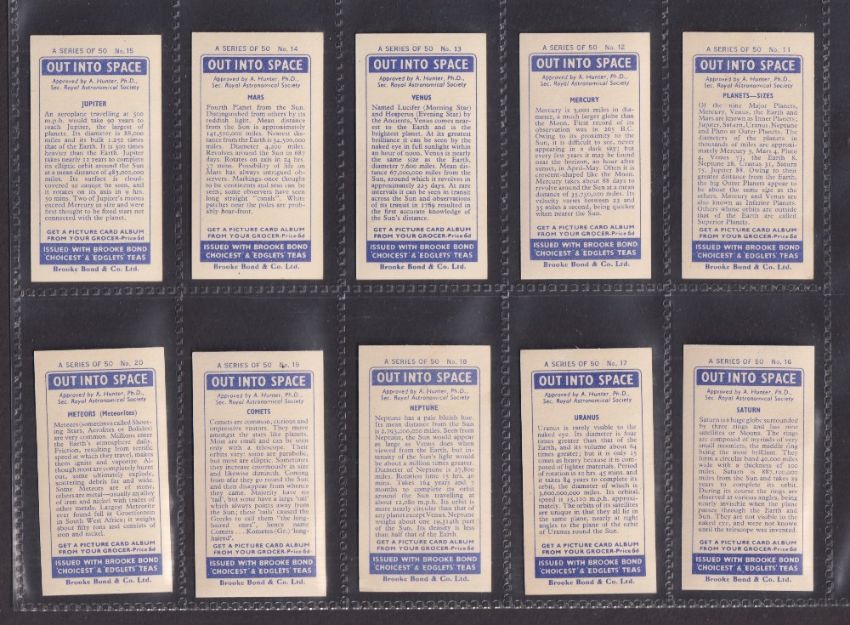 A SERIES OF 50 No. 15
OUT INTO SPACE
Approved by A. Hunter, Ph.D.,
Sec. Royal Astronomical Society
JUPITER
An aeroplane travelling at 500
m.p.h. would take 90 years to
reach Jupiter, the largest of
planets. Its diameter is 88,000
miles and its bulk 1,250 times
that of the Earth. It is 500 times
heavier than the Earth. Jupiter
takes nearly 12 years to complete
its elliptic orbit around the Sun
at a mean distance of 483,000,000
miles. Its surface is cloud-
covered so cannot be seen, and
it rotates on its axis in 9 hrs.
50 mins. Two of Jupiter's moons
exceed Mercury in size and were
first thought to be fixed stars not
connected with the planet.
GET A PICTURE CARD ALBUM
FROM YOUR GROCER-Price 6d
ISSUED WITH BROOKE BOND
'CHOICEST' & EDGLETS TEAS
Brooke Bond & Co. Ltd.
A SERIES OF 50 No. 14
OUT INTO SPACE
Approved by A. Hunter, Ph.D.,
Sec. Royal Astronomical Society
MARS
Fourth Planet from the Sun.
Distinguished from others by its
reddish light. Mean distance
from the Sun is approximately
141,510,000 miles. Nearest dis-
tance from the Earth is 34,500,000
miles. Diameter 4,200 miles.
Revolves around the Sun in 687
days. Rotates on axis in 24 hrs.
37 mins. Possibility of life on
Mars has always intrigued ob-
servers. Markings once thought
to be continents and seas can be
seen, some observers have seen
long straight "canals". White
patches near the poles are prob-
ably hoar-frost.
GET A PICTURE CARD ALBUM
FROM YOUR GROCER-Price 6d
ISSUED WITH BROOKE BOND
'CHOICEST' & EDGLETS TEAS
Brooke Bond & Co. Ltd.
A SERIES OF 50 No. 13
OUT INTO SPACE
Approved by A. Hunter, Ph.D.,
Sec. Royal Astronomical Society
VENUS
Named Lucifer (Morning Star)
and Hesperus (Evening Star) by
the Ancients, Venus comes near-
est to the Earth and is the
brightest planet. At its greatest
brilliance it can be seen by the
naked eye in full sunlight within
an hour of noon. Venus is nearly
the same size as the Earth,
diameter 7,600 miles. Mean dis-
tance 67,000,000 miles from the
Sun, around which it revolves in
approximately 225 days. At rare
intervals it can be seen in transit
across the Sun and observations
of its transit in 1769 resulted in
the first accurate knowledge of
the Sun's distance.
GET A PICTURE CARD ALBUM
FROM YOUR GROCER-Price 6d
ISSUED WITH BROOKE BOND
'CHOICEST' & EDGLETS TEAS
Brooke Bond & Co. Ltd.
A SERIES OF 50 No. 12
OUT INTO SPACE
Approved by A. Hunter, Ph.D.,
Sec. Royal Astronomical Society
MERCURY
Mercury is 3,000 miles in dia-
meter, a much larger globe than
the Moon. First record of its
observation was in 265 B.C.
Owing to its proximity to the
Sun, it is difficult to see, never
appearing in a dark sky; but
every few years it may be found
near the horizon, an hour after
sunset, in April-May. Often it is
crescent-shaped like the Moon.
Mercury takes about 88 days to
revolve around the Sun at a mean
distance of 35,750,000 miles. Its
velocity varies between 23 and
35 miles a second, being quicker
when nearer the Sun.
GET A PICTURE CARD ALBUM
FROM YOUR GROCER-Price 6d
ISSUED WITH BROOKE BOND
'CHOICEST' & EDGLETS TEAS
Brooke Bond & Co. Ltd.
A SERIES OF 50 No. 11
OUT INTO SPACE
Approved by A. Hunter, Ph.D.,
Sec. Royal Astronomical Society
PLANETS—SIZES
Of the nine Major Planets,
Mercury, Venus, the Earth and
Mars are known as Inner Planets;
Jupiter, Saturn, Uranus, Neptune
and Pluto as Outer Planets. The
diameters of the planets in
thousands of miles are approxi-
mately Mercury 3, Mars 4, Pluto
4, Venus 7½, the Earth 8,
Neptune 28, Uranus 31, Saturn
75, Jupiter 88. Owing to their
greater distance from the Earth,
the big Outer Planets appear to
be about the same size as the
others. Mercury and Venus are
also known as Inferior Planets.
Others whose orbits are outside
that of the Earth are called
Superior Planets.
GET A PICTURE CARD ALBUM
FROM YOUR GROCER-Price 6d
ISSUED WITH BROOKE BOND
'CHOICEST' & EDGLETS TEAS
Brooke Bond & Co. Ltd.
A SERIES OF 50 No. 20
OUT INTO SPACE
Approved by A. Hunter, Ph.D.,
Sec. Royal Astronomical Society
METEORS (Meteorites)
Meteors (sometimes called Shoot-
ing Stars, Aerolites or Bolides)
are very common. Millions enter
the Earth's atmosphere daily.
Friction, resulting from terrific
speed at which they travel, makes
them ignite and vaporize. Al-
though most are completely burnt
out, some ultimately explode,
scattering debris far and wide.
Some Meteors are of stone;
others are metal—usually an alloy
of iron and nickel with traces of
other metals. Largest Meteorite
ever found fell at Grootfontein
in South West Africa; it weighs
about fifty tons and consists of
iron and nickel.
GET A PICTURE CARD ALBUM
FROM YOUR GROCER-Price 6d
ISSUED WITH BROOKE BOND
'CHOICEST' & EDGLETS TEAS
Brooke Bond & Co. Ltd.
A SERIES OF 50 No. 19
OUT INTO SPACE
Approved by A. Hunter, Ph.D.,
Sec. Royal Astronomical Society
COMETS
Comets are common, curious and
impressive visitors. They move
amongst the stars like planets.
Most are small and can be seen
only with a telescope. Their
orbits vary: some are parabolic,
but most are elliptic. Sometimes
they increase enormously in size
and likewise diminish. Coming
from afar they go round the Sun
and then disappear from where it
they came. Majority have no
'tail', but some have a large 'tail'
which always points away from
the Sun; these 'tails' caused the
Greeks to call them "the long-
haired stars", hence name
Comets . . . Kometes-(Gr.) 'long-
haired'.
GET A PICTURE CARD ALBUM
FROM YOUR GROCER-Price 6d
ISSUED WITH BROOKE BOND
'CHOICEST' & EDGLETS TEAS
Brooke Bond & Co. Ltd.
A SERIES OF 50 No. 18
OUT INTO SPACE
Approved by A. Hunter, Ph.D.,
Sec. Royal Astronomical Society
NEPTUNE
Neptune has a pale bluish hue.
Its mean distance from the Sun
is 2,793,000,000 miles. Seen from
Neptune, the Sun would appear
as large as Venus does when
viewed from the Earth, but in-
tensity of the Sun's light would
be about a million times greater.
Diameter of Neptune is 27,600
miles. Rotation time 15 hrs. 40
mins. Takes 164 years and 9
months to complete its orbit
around the Sun travelling at
about 12,080 m.p.h. Its orbit is
more nearly circular than that of
any planet except Venus. Neptune
weighs about one 19,314th part
of the Sun. Its density is less
than half that of the Earth.
GET A PICTURE CARD ALBUM
FROM YOUR GROCER-Price 6d
ISSUED WITH BROOKE BOND
'CHOICEST' & EDGLETS TEAS
Brooke Bond & Co. Ltd.
A SERIES OF 50 No. 17
OUT INTO SPACE
Approved by A. Hunter, Ph.D.,
Sec. Royal Astronomical Society
URANUS
Uranus is rarely visible to the
naked eye. Its diameter is four
times greater than that of the
Earth, and its volume about 64
times greater; but it is only 15
times as heavy because it is com-
posed of lighter materials. Period
of rotation is 10 hrs. 45 mins. and
it takes 84 years to complete its
orbit, the diameter of which is
3,600,000,000 miles. Its orbital
speed is 15,210 m.p.h. approxi-
mately. The orbits of its satellites
are unique in that they all lie in
the same plane, nearly at right
angles to the plane of the orbit
of Uranus round the Sun.
GET A PICTURE CARD ALBUM
FROM YOUR GROCER-Price 6d
ISSUED WITH BROOKE BOND
'CHOICEST' & EDGLETS TEAS
Brooke Bond & Co. Ltd.
A SERIES OF 50 No. 16
OUT INTO SPACE
Approved by A. Hunter, Ph.D.,
Sec. Royal Astronomical Society
SATURN
Saturn is a huge globe surrounded
by three rings and has nine
satellites or Moons. The rings
are composed of myriads of very
small moonlets, the middle ring
being the most brilliant. They
form a circular band 40,000 miles
wide with a thickness of 100
miles. Saturn is 887,100,000
miles from the Sun and takes 29
years to complete its orbit.
During its course the rings are
observed at various angles, being
nearly invisible when the plane
passes through the Earth and
Sun. They are not visible to the
naked eye, and were not known
until the telescope was invented.
GET A PICTURE CARD ALBUM
FROM YOUR GROCER-Price 6d
ISSUED WITH BROOKE BOND
'CHOICEST' & EDGLETS TEAS
Brooke Bond & Co. Ltd.